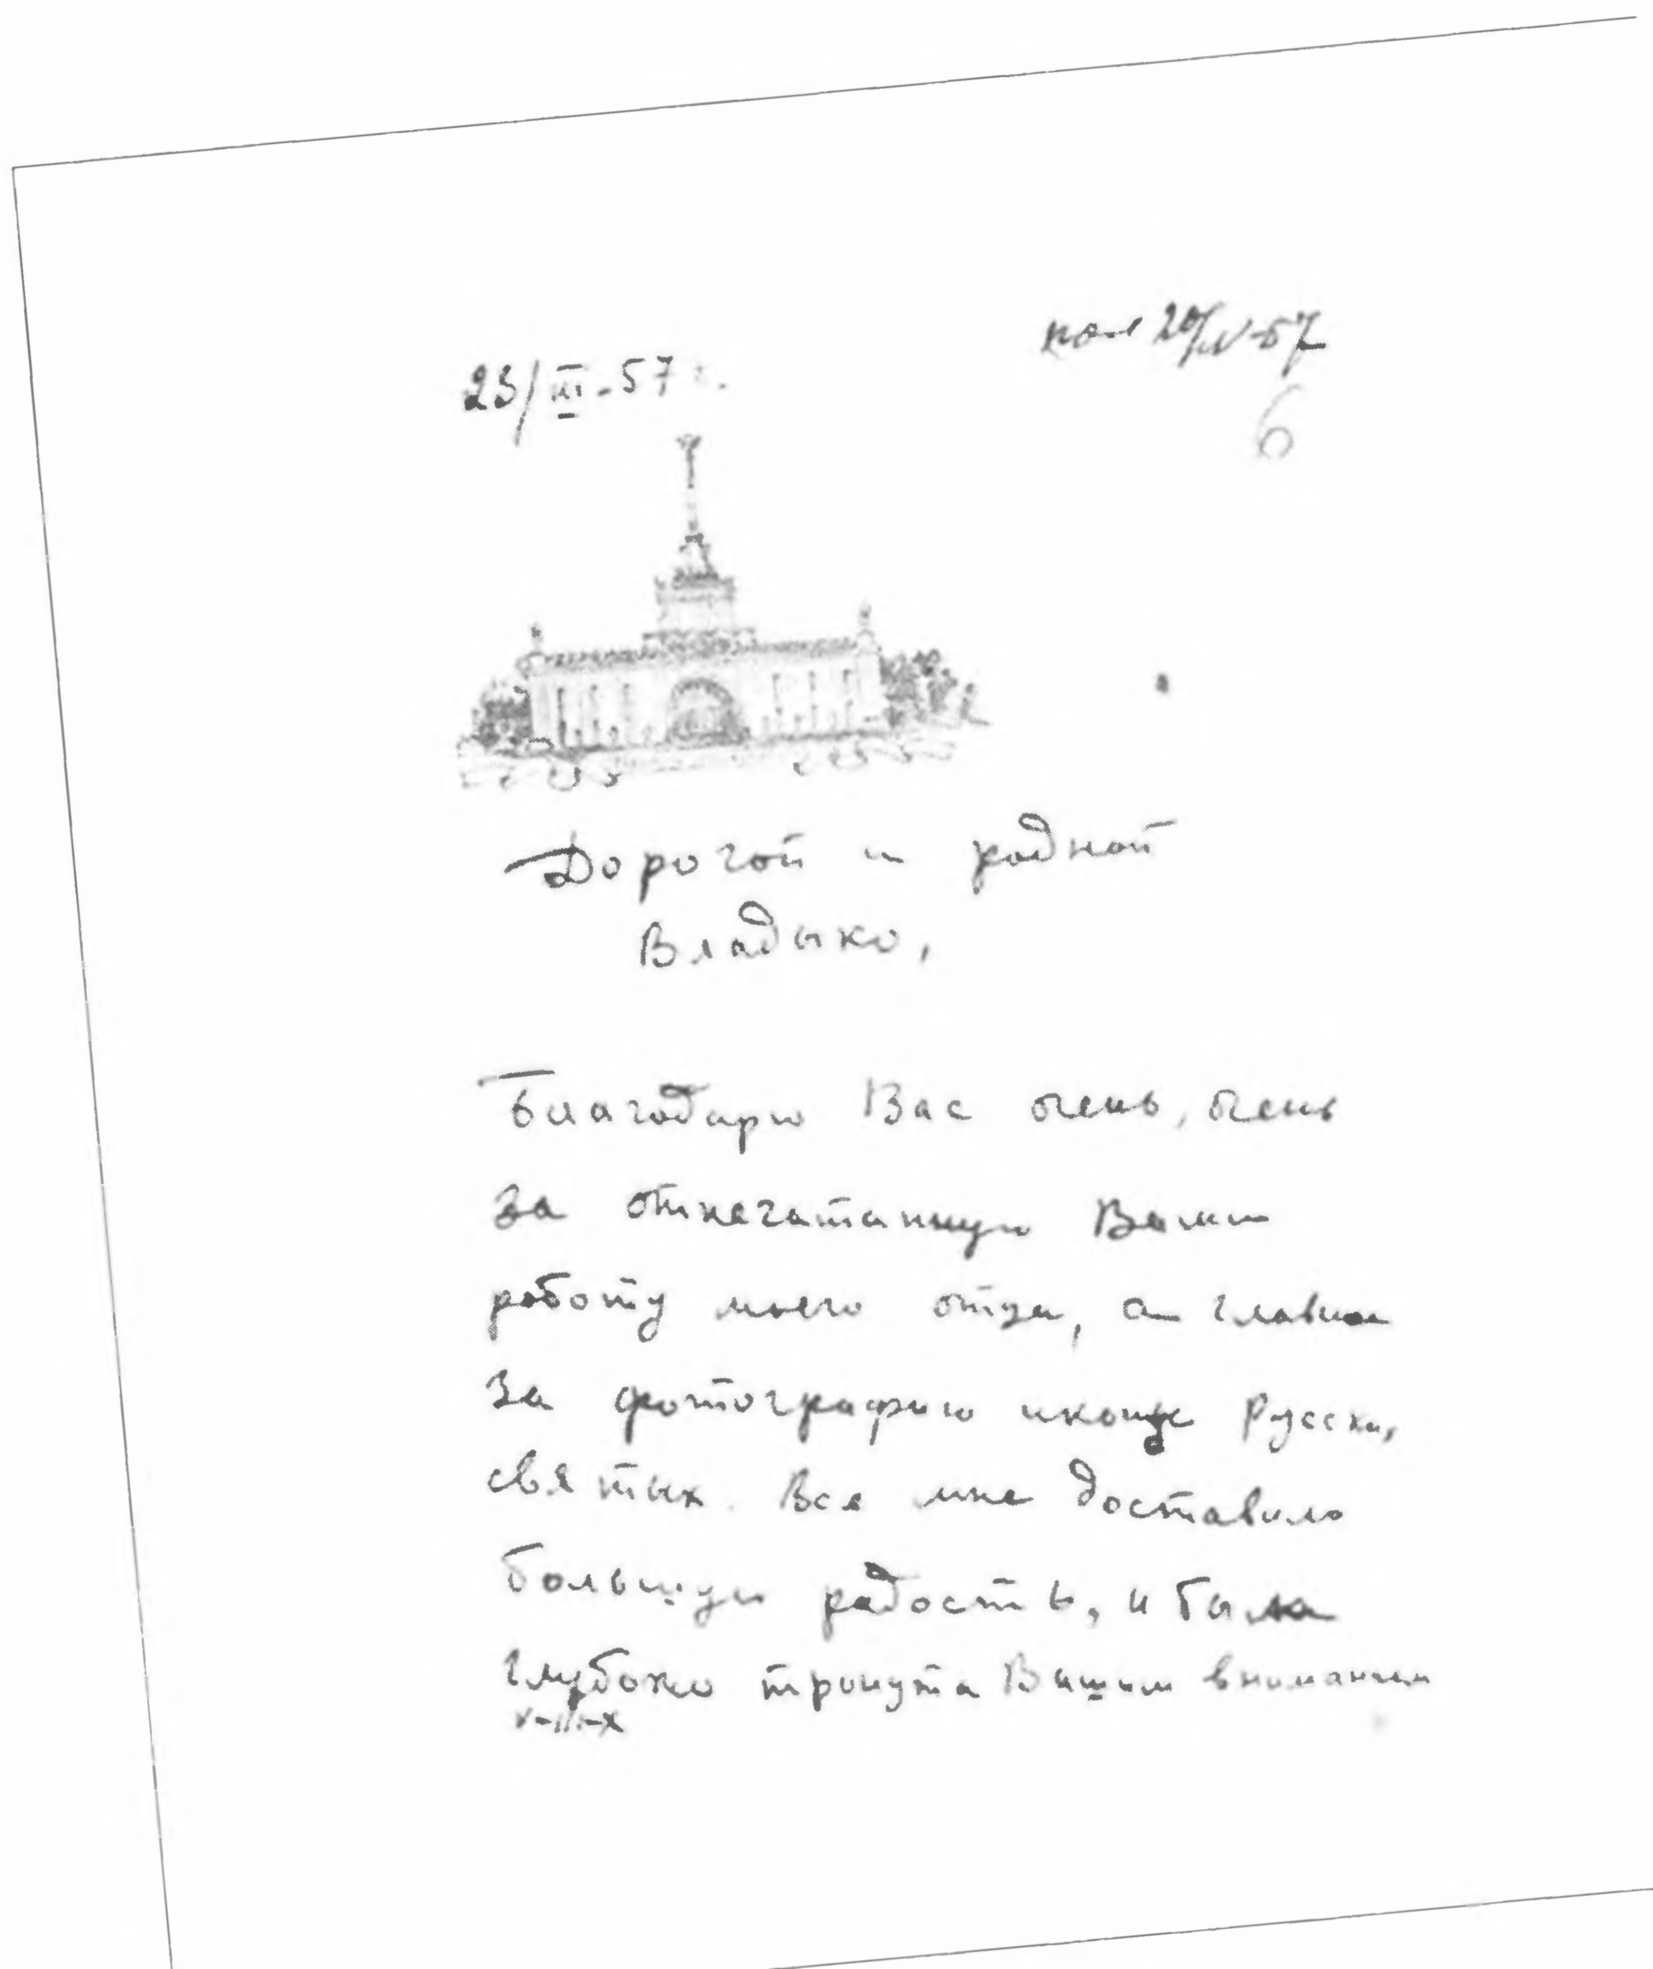 23/III-57 г.
пол 20/IV-57
6
Дорогой и родной
Владыко,
Благодарю Вас очень, очень
за отпечатанную Вами
работу моего отца, а главное
за фотографию иконы Русских
святых. Все мне доставило
большую радость, и была
глубоко тронута Вашим вниманием